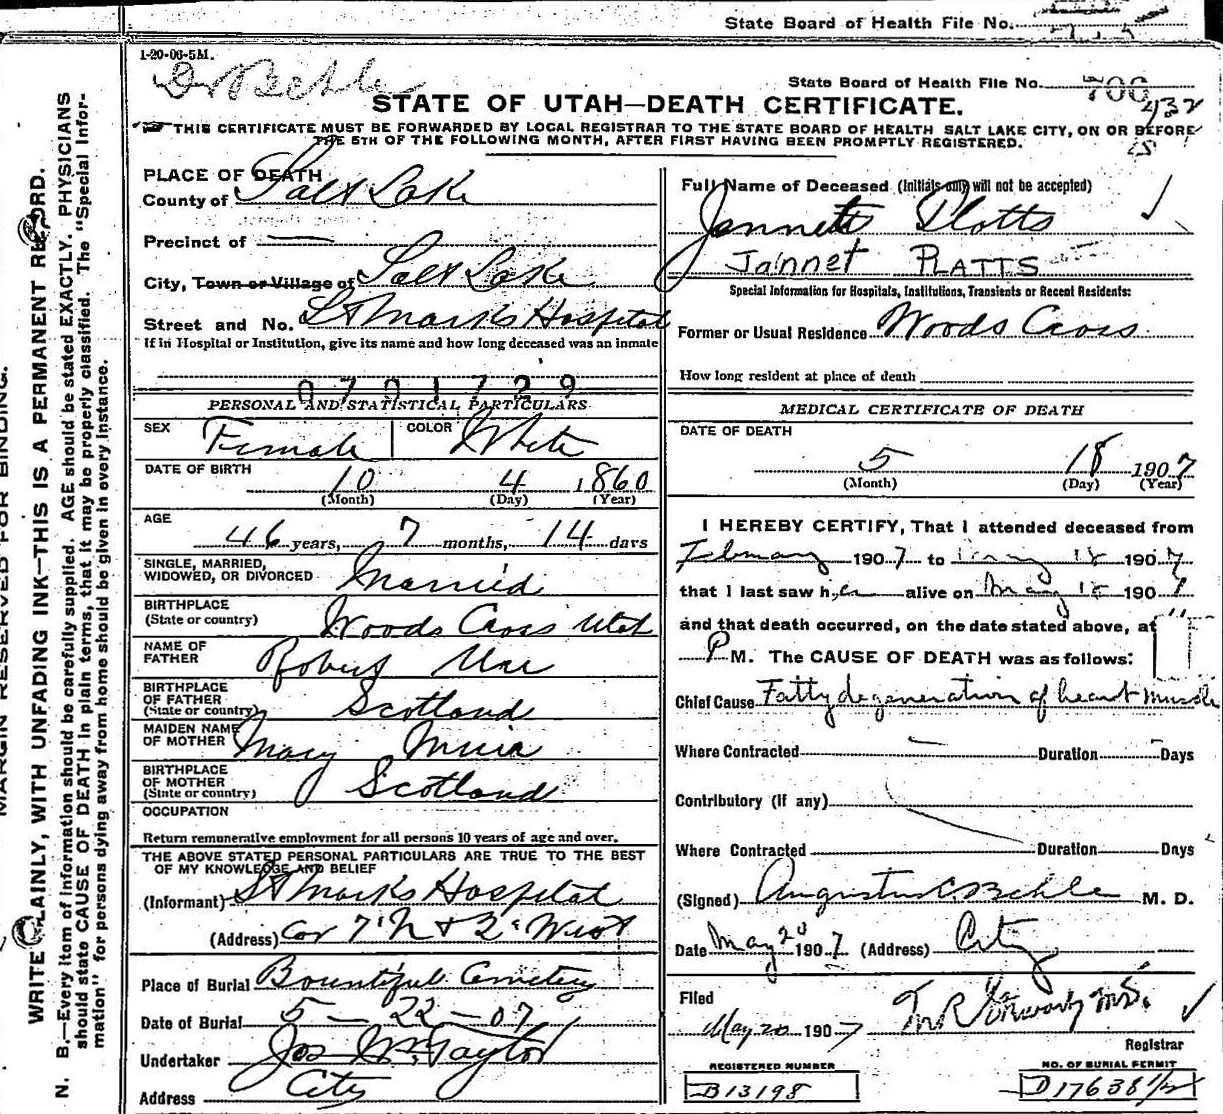 State Board of Health File No.
1-20-06-5M.
Dr Behle
State Board of Health File No. 700
432
15
STATE OF UTAH—DEATH CERTIFICATE.
THIS CERTIFICATE MUST BE FORWARDED BY LOCAL REGISTRAR TO THE STATE BOARD OF HEALTH SALT LAKE CITY, ON OR BEFORE
THE 5TH OF THE FOLLOWING MONTH, AFTER FIRST HAVING BEEN PROMPTLY REGISTERED.
MARGIN RESERVED FOR BINDING.
WRITE PLAINLY, WITH UNFADING INK—THIS IS A PERMANENT RECORD.
N. B.—Every item of information should be carefully supplied. AGE should be stated EXACTLY. PHYSICIANS
should state CAUSE OF DEATH in plain terms, that it may be properly classified. The "Special Infor-
mation" for persons dying away from home should be given in every instance.
PLACE OF DEATH
County of Salt Lake
Precinct of —
City, Town or Village of Salt Lake
Street and No. St Marks Hospital
If in Hospital or Institution, give its name and how long deceased was an inmate
0701729
PERSONAL AND STATISTICAL PARTICULARS
SEX Female COLOR White
DATE OF BIRTH
10 4 1860
(Month) (Day) (Year)
AGE
46 years, 7 months, 14 days
SINGLE, MARRIED,
WIDOWED, OR DIVORCED Married
BIRTHPLACE
(State or country) Woods Cross Utah
NAME OF
FATHER Robert
BIRTHPLACE
OF FATHER
(State or country) Scotland
MAIDEN NAME
OF MOTHER Mary Muir
BIRTHPLACE
OF MOTHER
(State or country) Scotland
OCCUPATION
Return remunerative employment for all persons 10 years of age and over.
THE ABOVE STATED PERSONAL PARTICULARS ARE TRUE TO THE BEST
OF MY KNOWLEDGE AND BELIEF
(Informant) St Marks Hospital
(Address) Cor 7' N & 2' West
Place of Burial Bountiful Cemetery
Date of Burial 5 — 22 — 07
Undertaker Jos Wm Taylor
Address City
Full Name of Deceased (Initials only will not be accepted)
Jennette Plotts
Jannet PLATTS
Special Information for Hospitals, Institutions, Transients or Recent Residents:
Former or Usual Residence Woods Cross
How long resident at place of death
MEDICAL CERTIFICATE OF DEATH
DATE OF DEATH
5 18 1907
(Month) (Day) (Year)
I HEREBY CERTIFY, That I attended deceased from
February 1907 to May 18 1907
that I last saw her alive on May 18 1907
and that death occurred, on the date stated above, at
P M. The CAUSE OF DEATH was as follows:
Chief Cause Fatty degeneration of heart muscle
Where Contracted Duration Days
Contributory (if any)
Where Contracted Duration Days
(Signed) Augustus C. Behle M. D.
Date May 20 1907 (Address) City
Filed
May 20 1907
Registrar
REGISTERED NUMBER
B13198
NO. OF BURIAL PERMIT
D17638 1/2